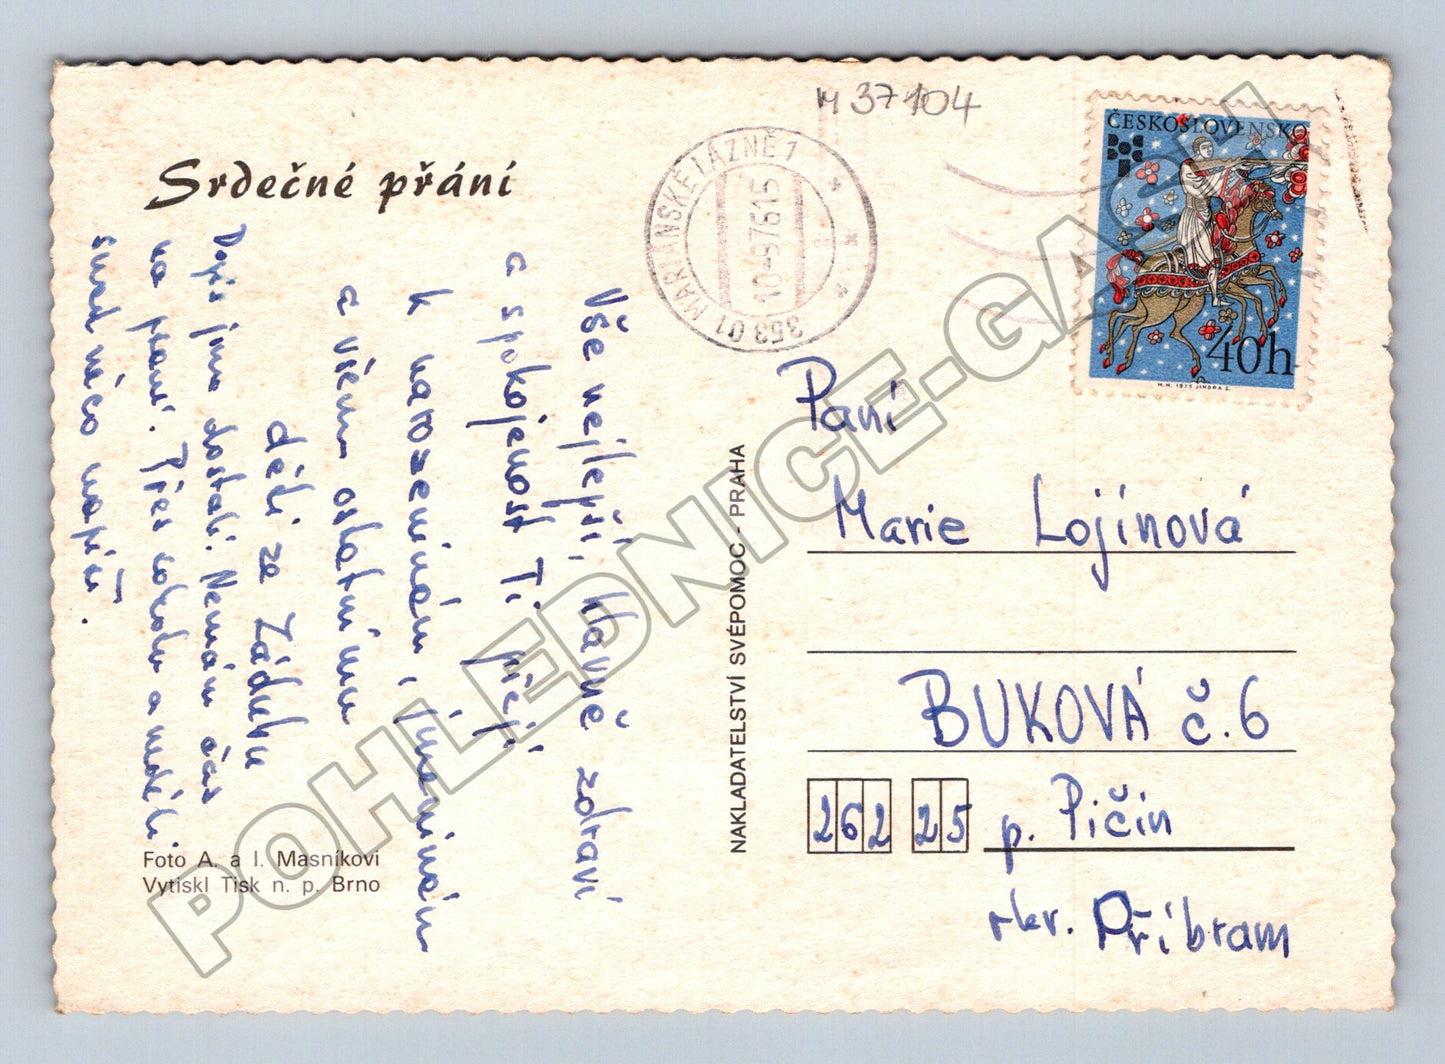 Srdečné přání
Vše nejlepší, hlavně zdraví
a spokojenost Ti přejí
k narozeninám, jmeninám
a všem ostatnímu
děti ze Zádubu
Dopis jsme dostali. Nemám čas
na psaní. Přes sobotu a neděli
snad něco napíši.
Foto A. a I. Masníkovi
Vytiskl Tisk n. p. Brno
NAKLADATELSTVÍ SVÉPOMOC - PRAHA
M 37104
353 01 MARIÁNSKÉ LÁZNĚ 1
10-9.76 15
ČESKOSLOVENSKO
40h
H.H. 1975 JINDRA S.
Paní
Marie Lojínová
BUKOVÁ č.6
262 25 p. Pičín
okr. Příbram
POHLEDNICE-GASH